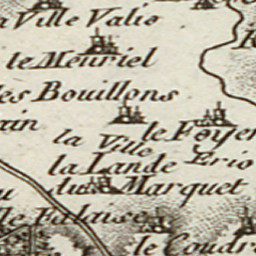 la Ville Valio
le Meuriel
les Bouillons
la Ville
le Foyer
Brio
la Lande
du Marquet
le Falaise
le Coudra